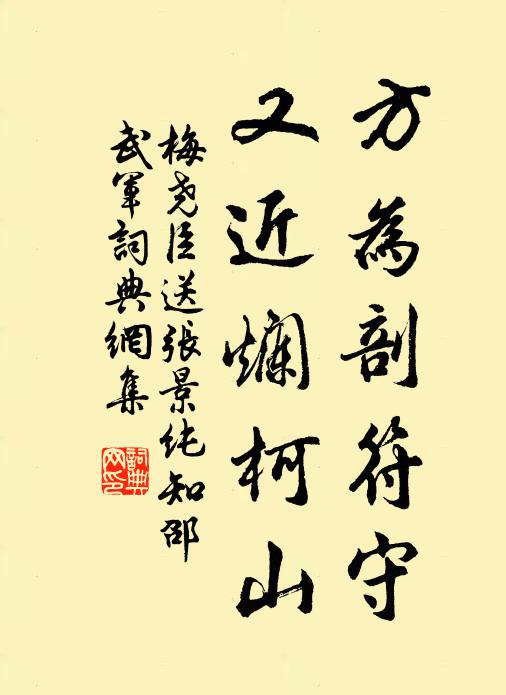 方為剖符守
又近爛柯山
梅堯臣送張景純知邵
武軍詞典網集
詞典網印